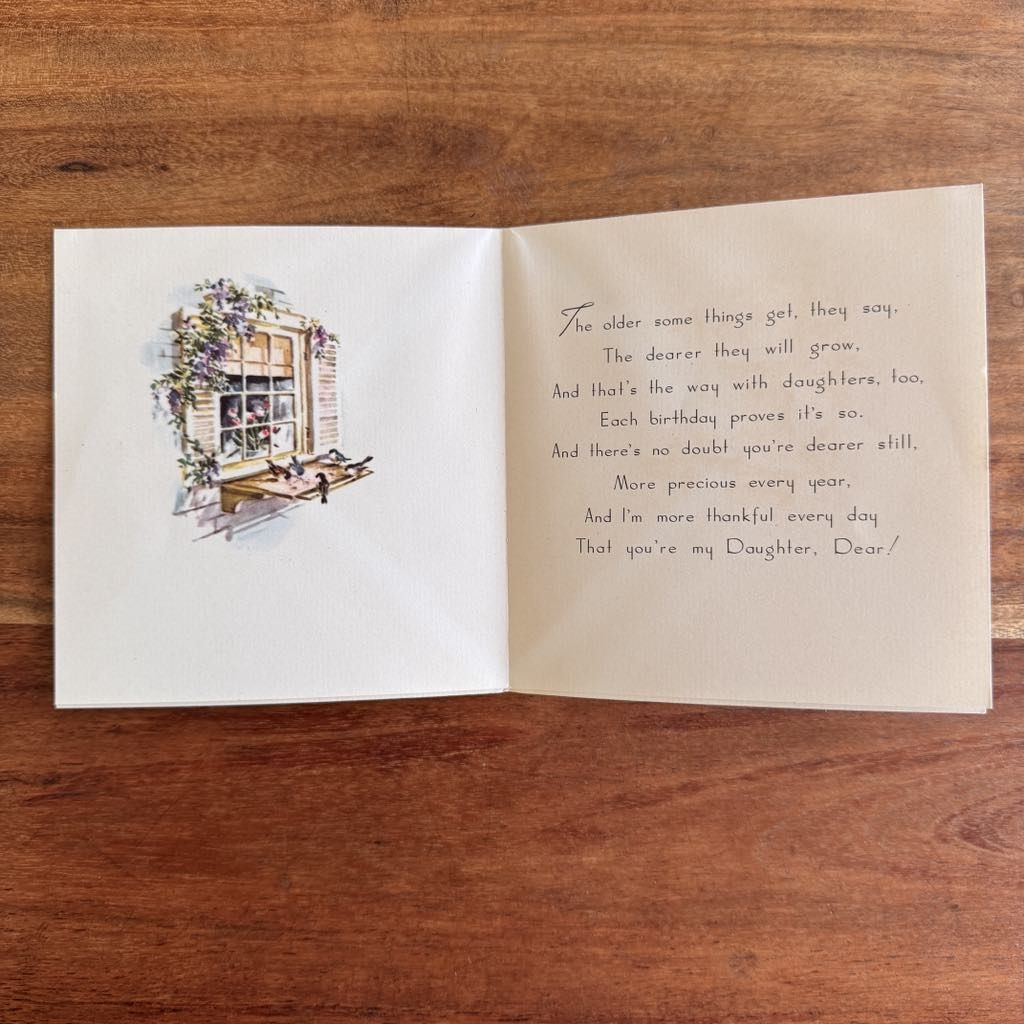 The older some things get, they say,
The dearer they will grow,
And that's the way with daughters, too,
Each birthday proves it's so.
And there's no doubt you're dearer still,
More precious every year,
And I'm more thankful every day
That you're my Daughter, Dear!